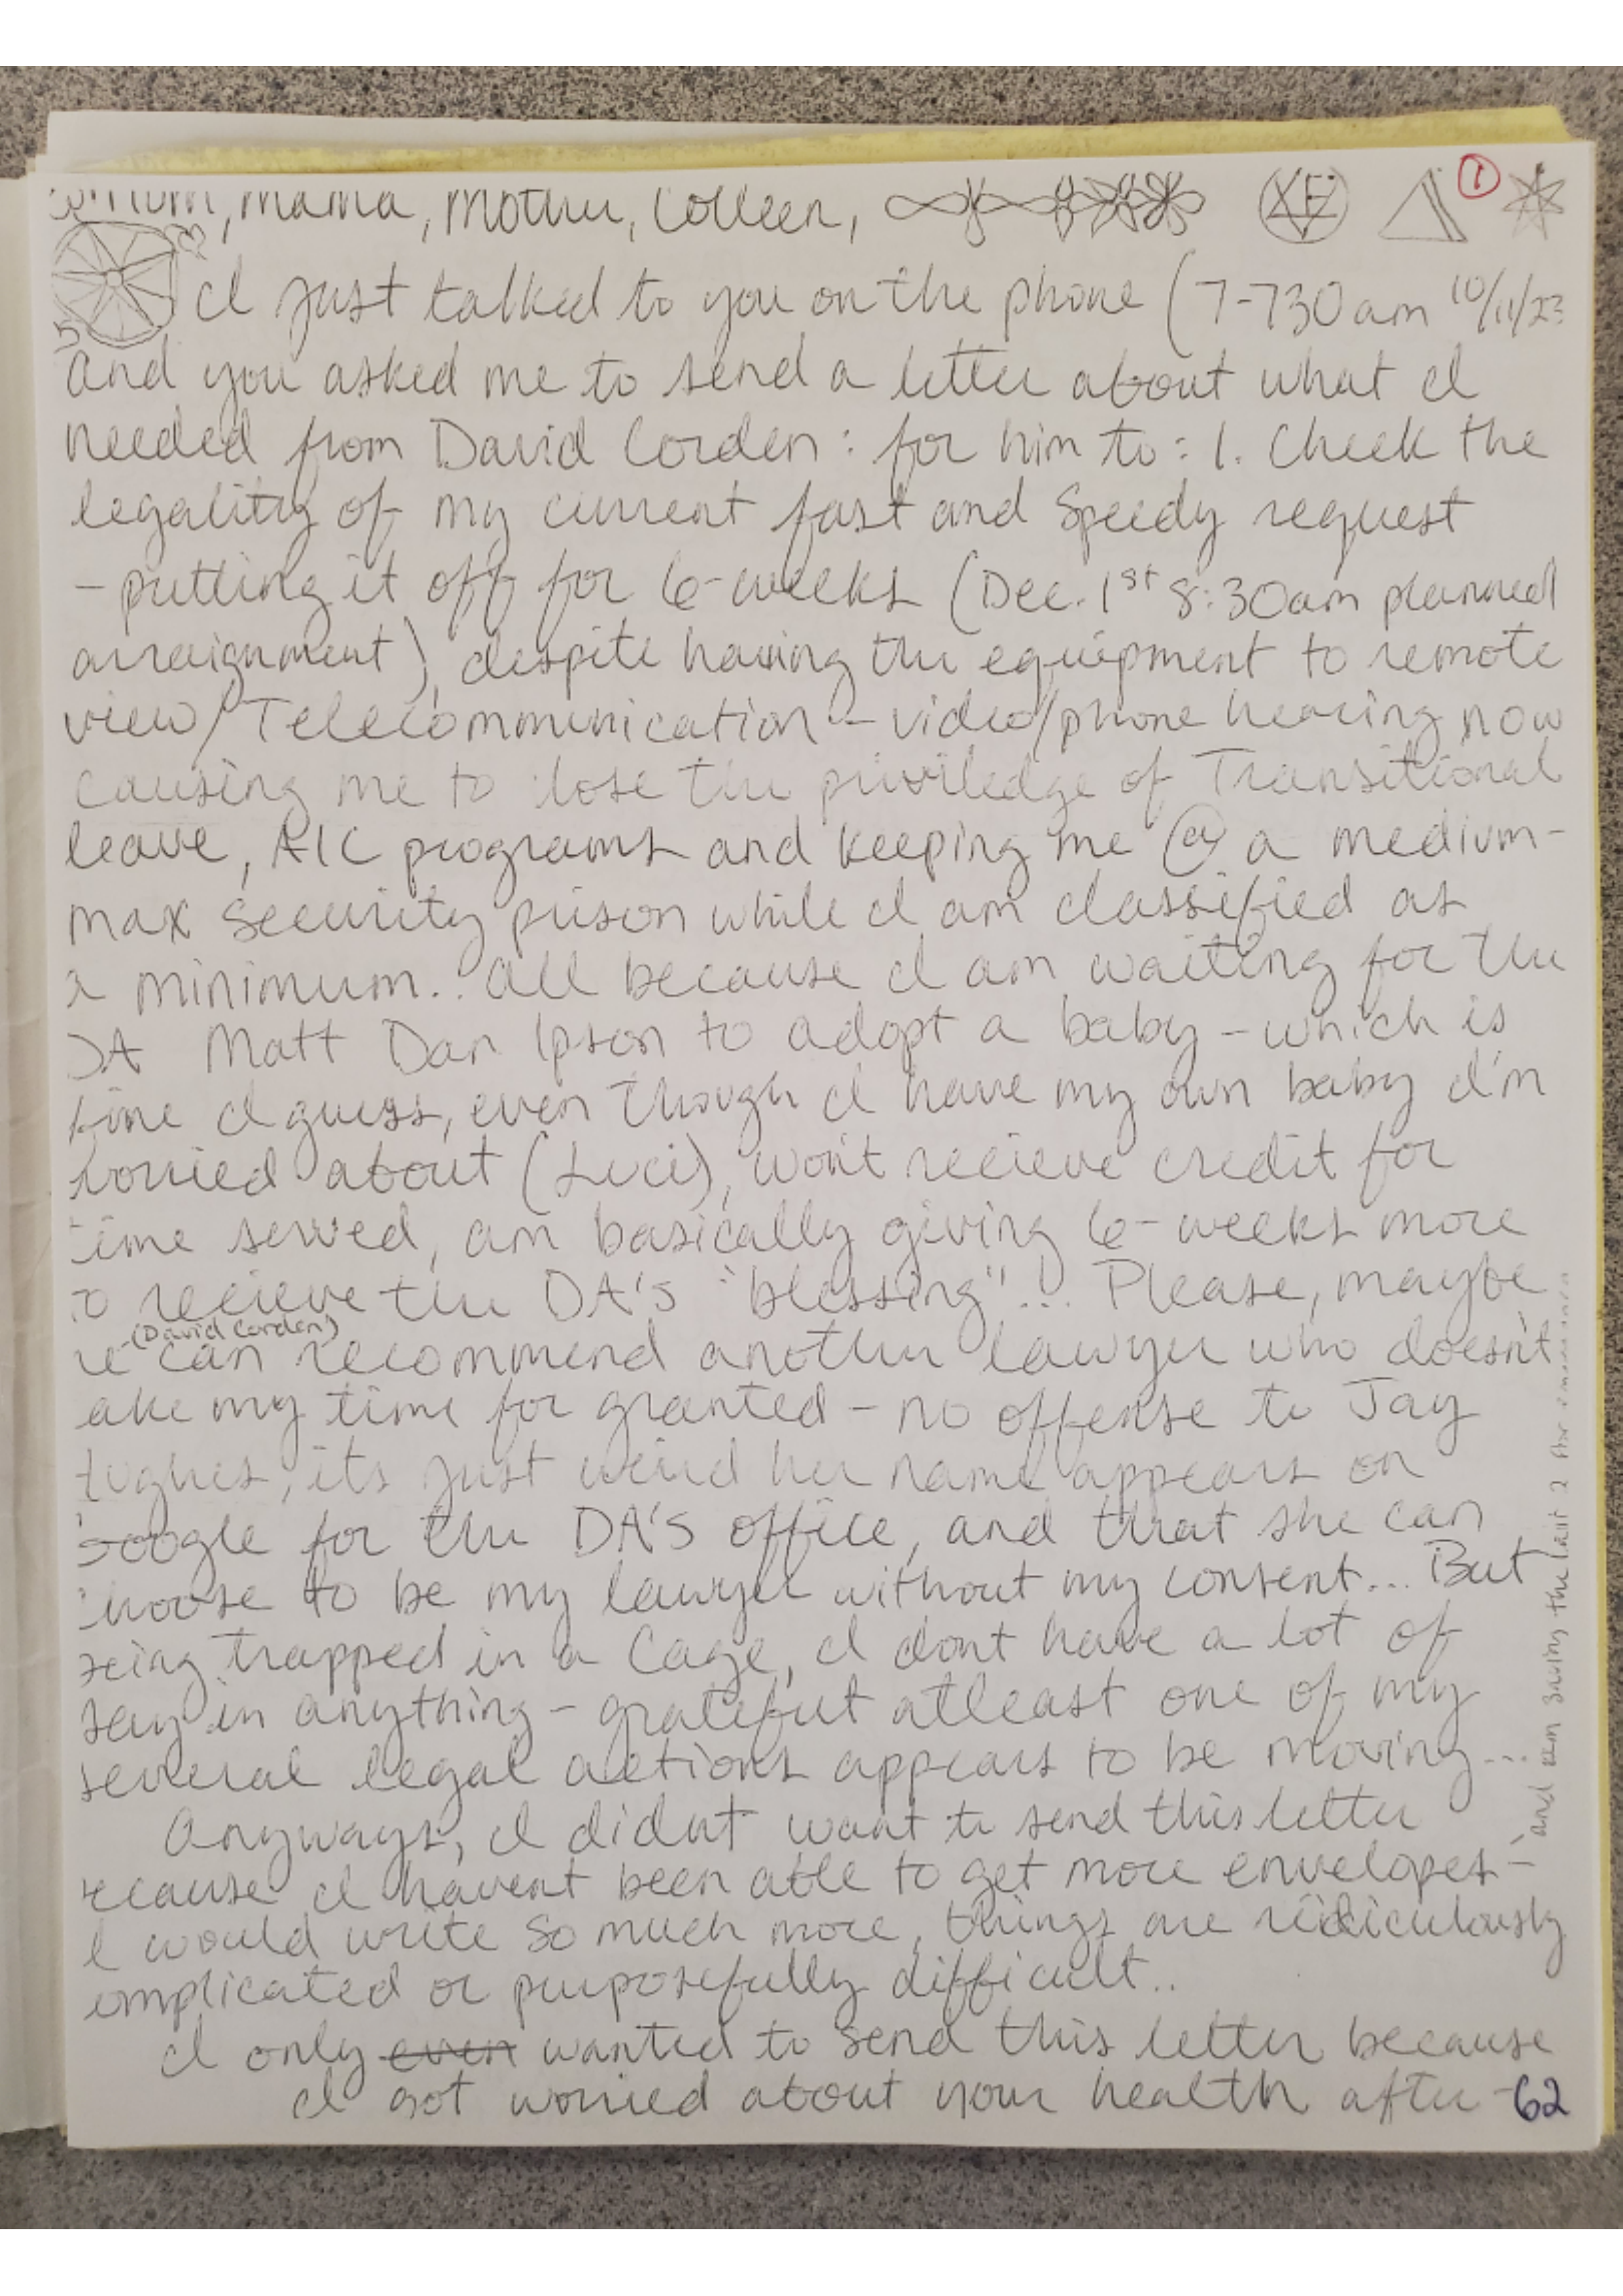 mum, mama, mother, Colleen, ①
I just talked to you on the phone (7-730am 10/11/23
and you asked me to send a letter about what I
needed from David Corden: for him to: 1. Check the
legality of my current fast and Speedy request
- putting it off for 6-weeks (Dec. 1st 8:30am planned
arraignment), despite having the equipment to remote
view/Telecommunication - video/phone hearing now
causing me to lose the priviledge of Transitional
leave, AIC programs and keeping me @ a medium-
max security prison while I am classified as
a minimum.. all because I am waiting for the
DA Matt Dan Ipson to adopt a baby - which is
fine I guess, even though I have my own baby I'm
worried about (Luci), won't recieve credit for
time served, am basically giving 6-weeks more
to recieve the DA's "blessing"!.. Please, maybe
(David Corden)
he can recommend another lawyer who doesn't
take my time for granted - no offense to Jay
Hughes, its just weird her name appears on
Google for the DA's office, and that she can
choose to be my lawyer without my consent... But
being trapped in a Cage, I dont have a lot of
say in anything - grateful atleast one of my
several legal actions appears to be moving...
Anyways, I didnt want to send this letter
because I havent been able to get more envelopes -
I would write so much more, things are rediculously
complicated or purposefully difficult..
I only even wanted to send this letter because
I got worried about your health after -
62
and am saving the last 2 for